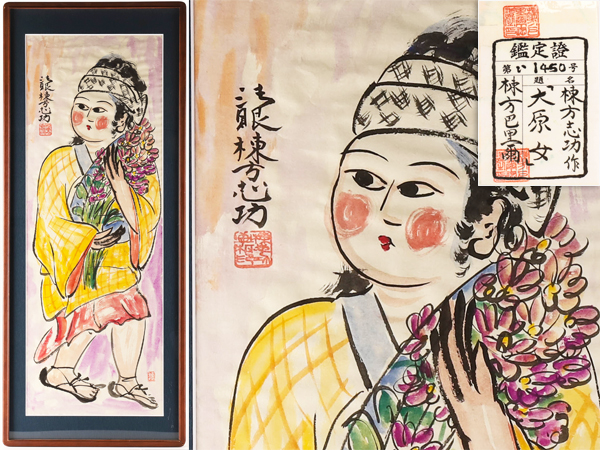 眼棟方志功
眼棟方志功
鑑定證
第い1450号
題名
棟方志功作
大原女
棟方巴里爾